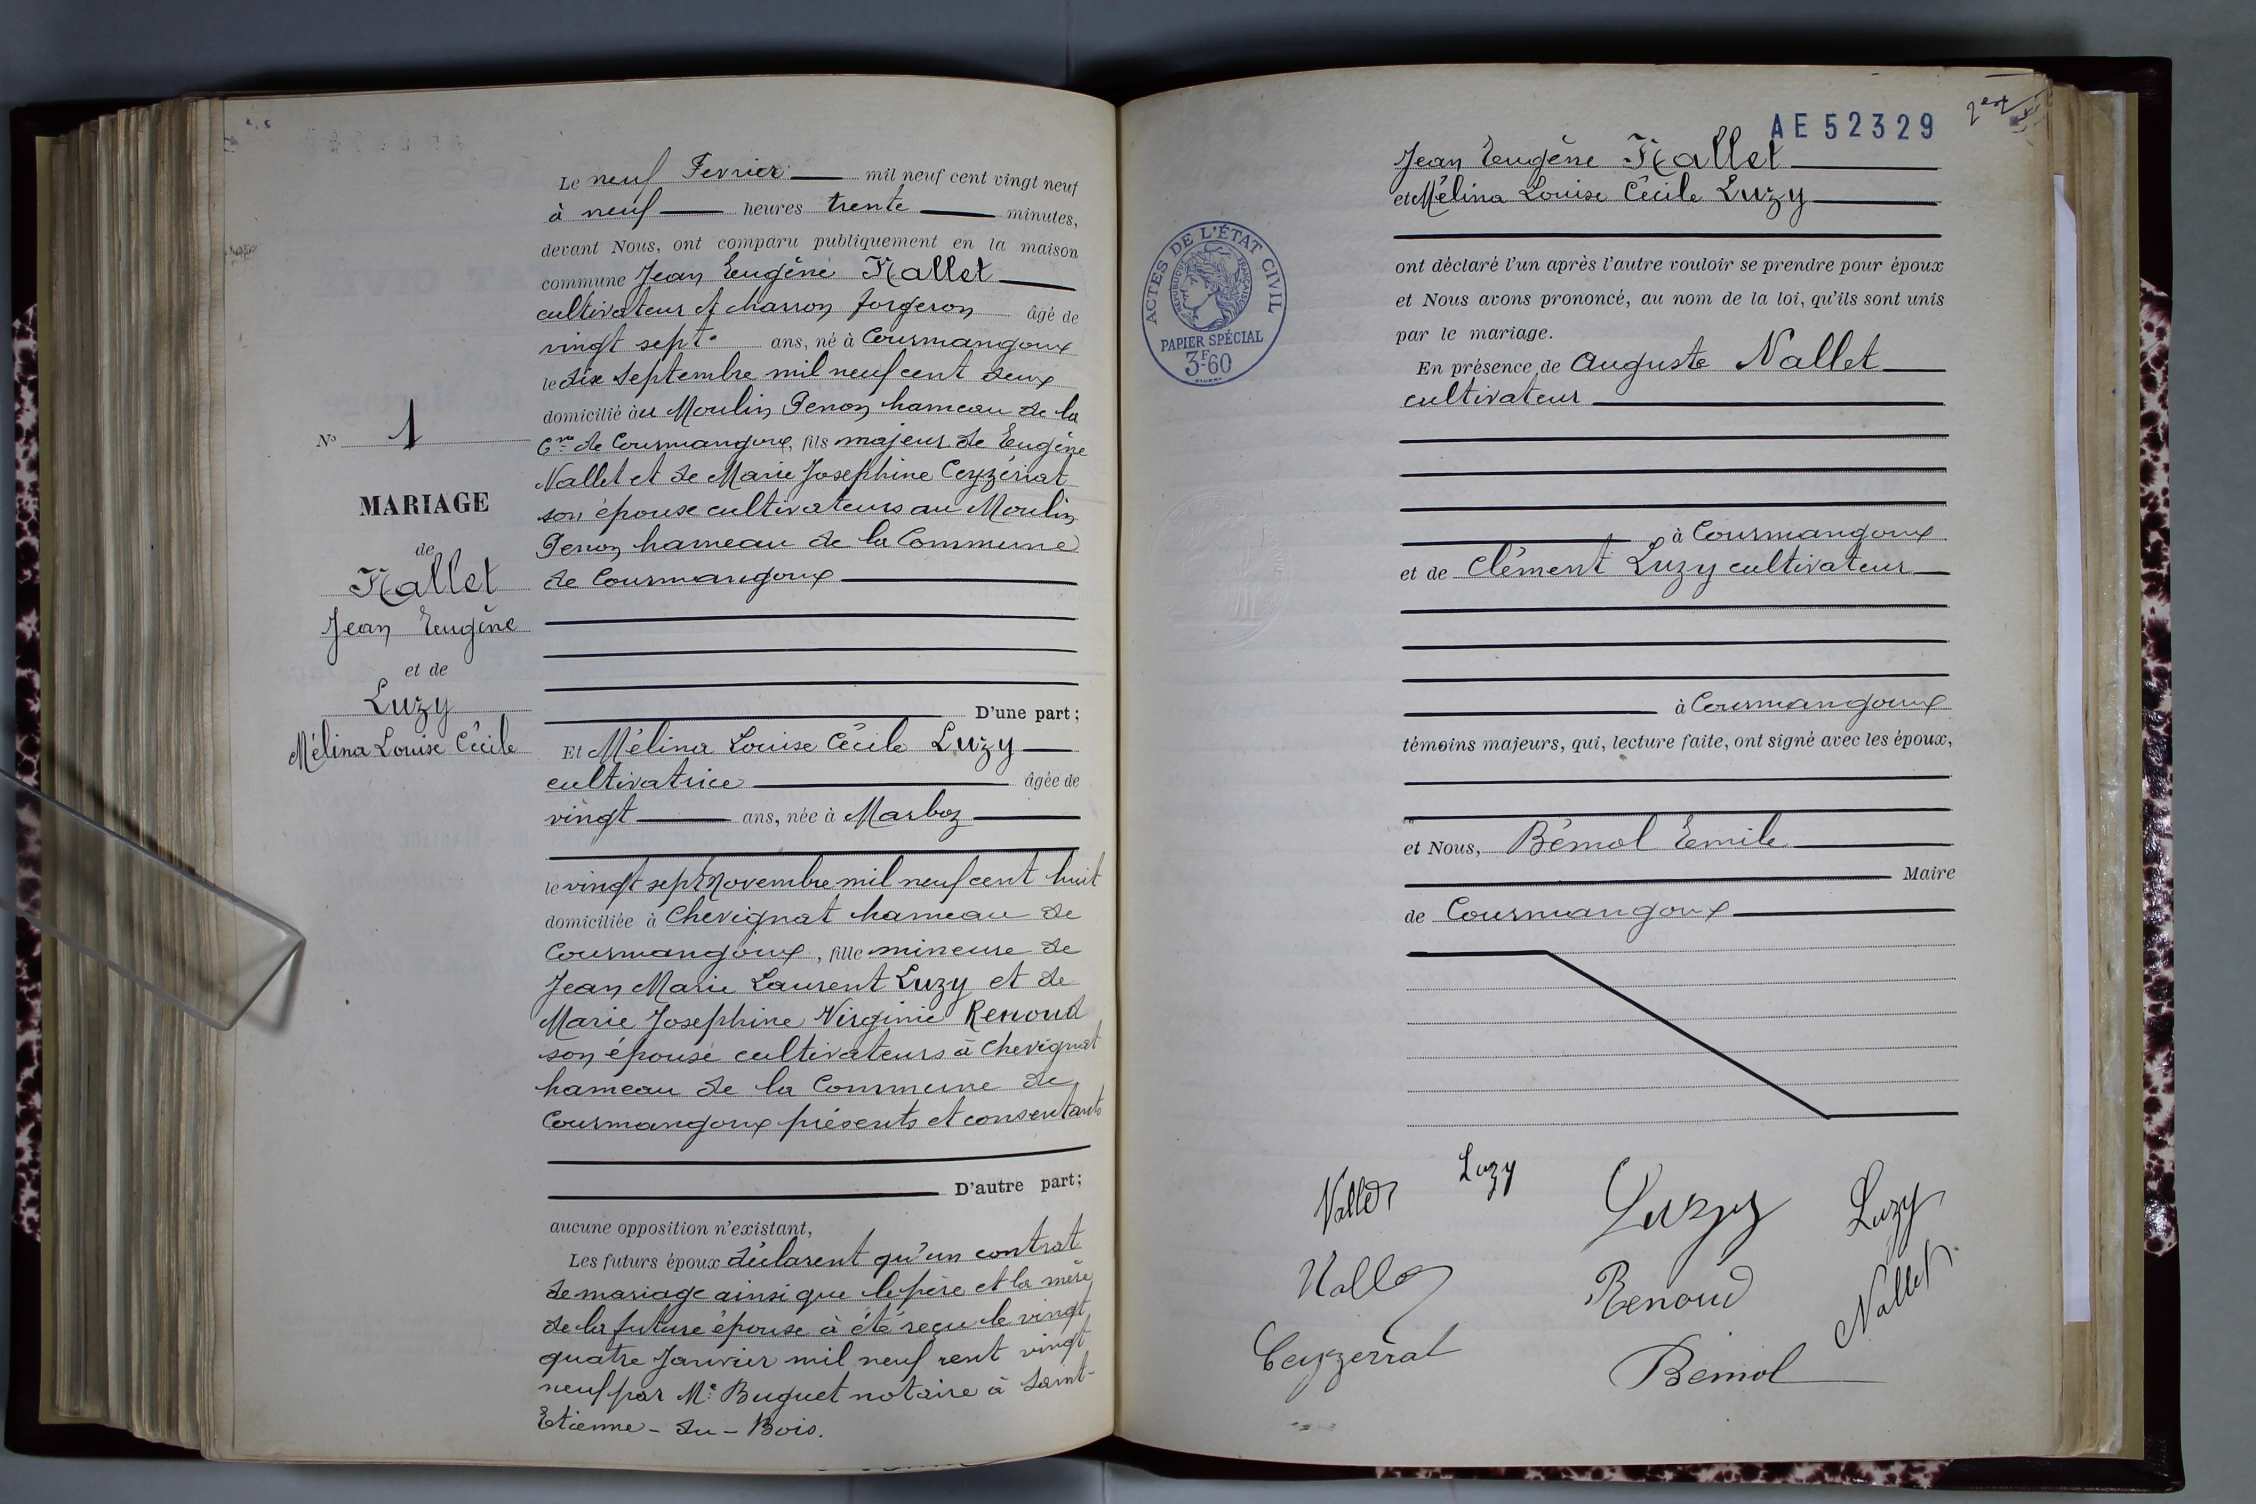 N° 1
MARIAGE
de
Nallet
Jean Eugène
et de
Luzy
Mélina Louise Cécile
Le neuf Fevrier mil neuf cent vingt neuf
à neuf heures trente minutes,
devant Nous, ont comparu publiquement en la maison
commune Jean Eugène Nallet
cultivateur et charron forgeron âgé de
vingt sept ans, né à Courmangoux
le dix septembre mil neuf cent deux
domicilié au Moulin Genon hameau de la
Cne de Courmangoux, fils majeur de Eugène
Nallet et de Marie Josephine Ceyzériat
son épouse cultivateurs au Moulin
Genon hameau de la Commune
de Courmangoux
D'une part;
Et Mélina Louise Cécile Luzy
cultivatrice âgée de
vingt ans, née à Marboz
le vingt sept Novembre mil neuf cent huit
domiciliée à Chevignat hameau de
Courmangoux, fille mineure de
Jean Marie Laurent Luzy et de
Marie Josephine Virginie Renoud
son épouse cultivateurs à Chevignat
hameau de la Commune de
Courmangoux présents et consentants
D'autre part;
aucune opposition n'existant,
Les futurs époux déclarent qu'un contrat
de mariage ainsi que le père et la mère
de la future épouse à été reçu le vingt
quatre Janvier mil neuf cent vingt
neuf par Me Buguet notaire à Saint-
Etienne-du-Bois.
AE52329
ACTES DE L'ÉTAT CIVIL
RÉPUBLIQUE FRANÇAISE
PAPIER SPÉCIAL
3F.60
Jean Eugène Nallet
et Mélina Louise Cécile Luzy
ont déclaré l'un après l'autre vouloir se prendre pour époux
et Nous avons prononcé, au nom de la loi, qu'ils sont unis
par le mariage.
En présence de Auguste Nallet
cultivateur
à Courmangoux
et de Clément Luzy cultivateur
à Courmangoux
témoins majeurs, qui, lecture faite, ont signé avec les époux,
et Nous, Bémol Emile
Maire
de Courmangoux
Nallet Luzy Luzy Luzy
Nallet Renoud Nallet
Ceyzériat Bémol